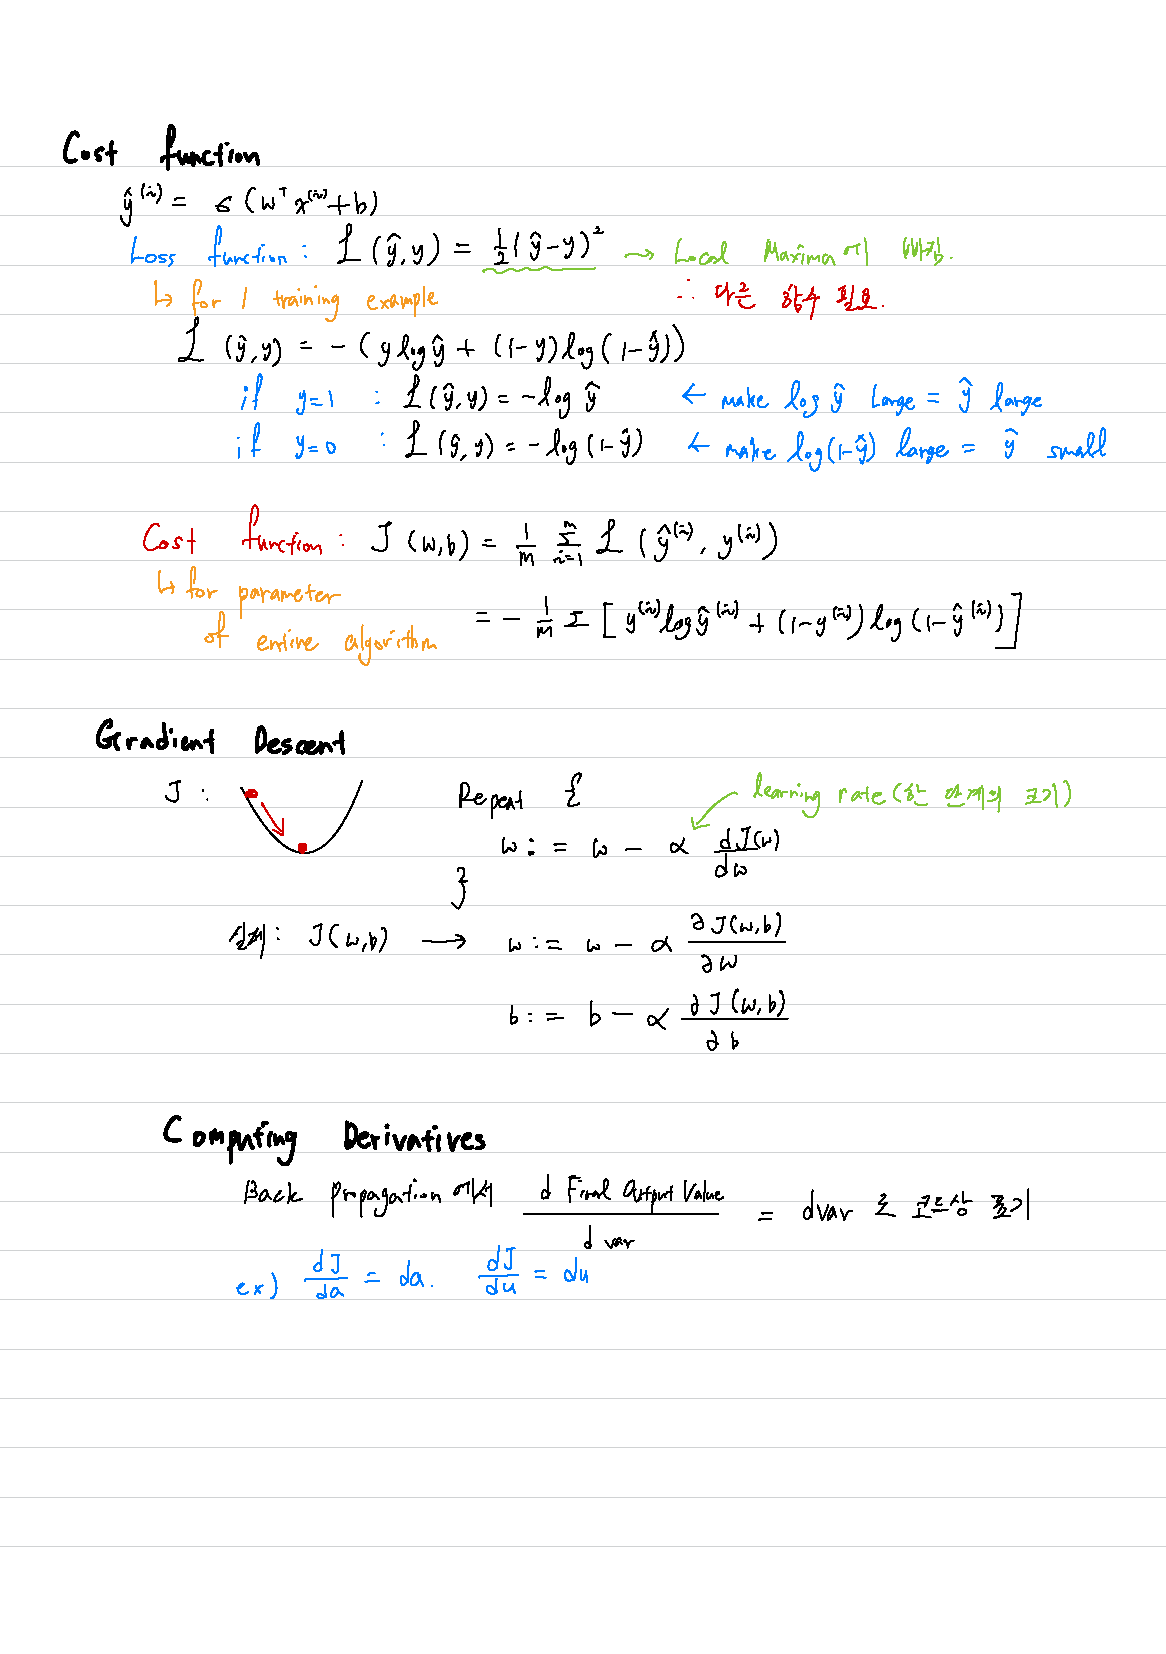 Cost function
ŷ⁽ⁱ⁾ = σ(wᵀx⁽ⁱ⁾+b)
Loss function : L(ŷ,y) = ½(ŷ-y)² → Local Maxima에 빠짐.
↳ for 1 training example ∴ 다른 함수 필요.
L(ŷ,y) = -(y log ŷ + (1-y)log(1-ŷ))
if y=1 : L(ŷ,y) = -log ŷ ← make log ŷ Large = ŷ large
if y=0 : L(ŷ,y) = -log(1-ŷ) ← make log(1-ŷ) large = ŷ small
Cost function : J(w,b) = 1/m Σᵢ₌₁ᵐ L(ŷ⁽ⁱ⁾, y⁽ⁱ⁾)
↳ for parameter
of entire algorithm = - 1/m Σ [y⁽ⁱ⁾log ŷ⁽ⁱ⁾ + (1-y⁽ⁱ⁾)log(1-ŷ⁽ⁱ⁾)]
Gradient Descent
J : Repeat { learning rate(한 단계의 크기)
w := w - α dJ(w)/dw
}
실제: J(w,b) → w := w - α ∂J(w,b)/∂w
b := b - α ∂J(w,b)/∂b
Computing Derivatives
Back propagation에서 d Final Output Value / d var = dvar 로 코드상 표기
ex) dJ/da = da. dJ/du = du